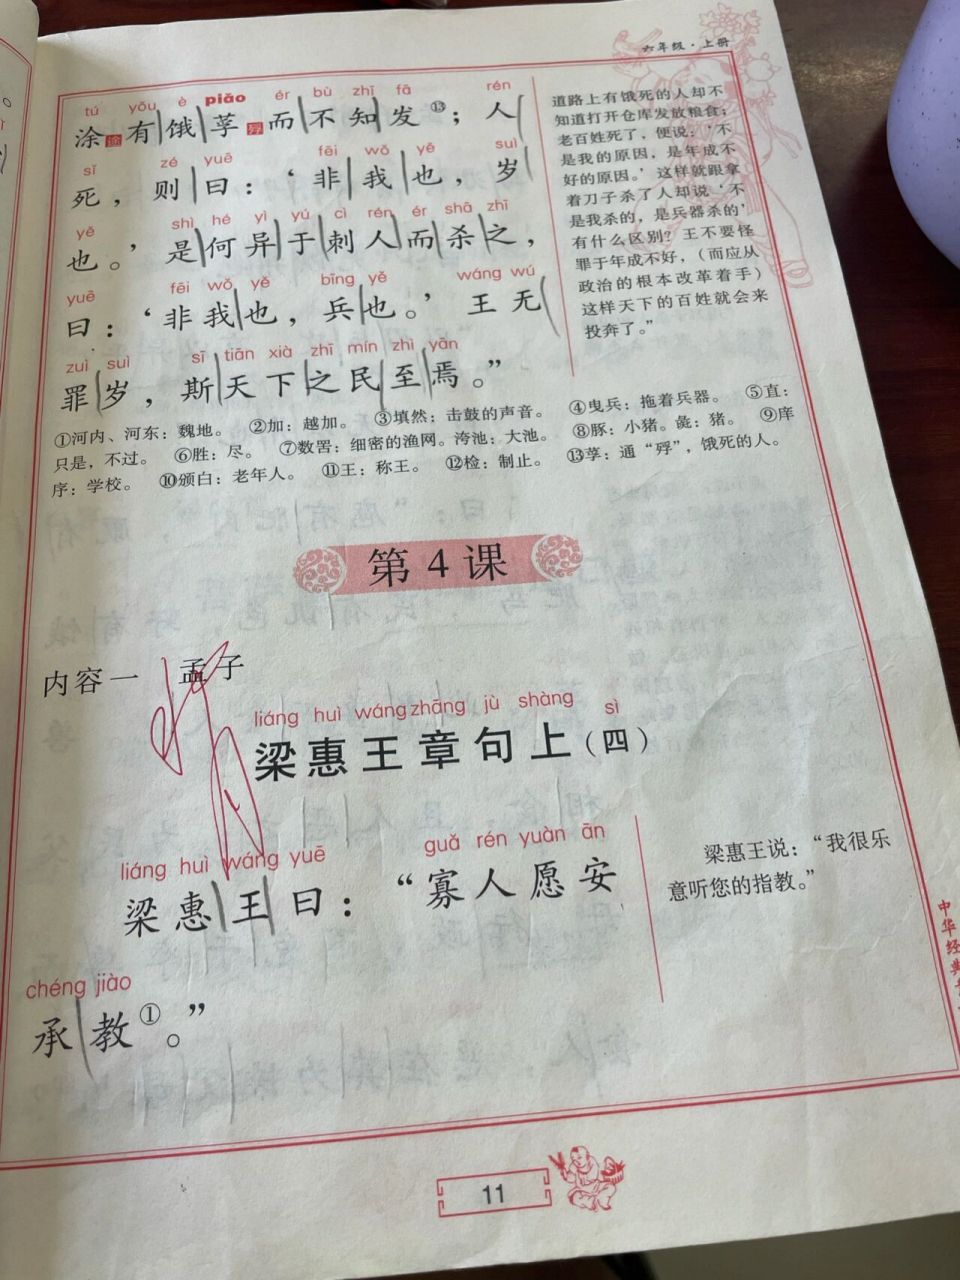 六年级·上册
tú yǒu è piǎo ér bù zhī fā rén
涂途有饿莩殍而不知发⑬；人
sǐ zé yuē fēi wǒ yě suì
死，则曰：‘非我也，岁
yě shì hé yì yú cì rén ér shā zhī
也。’是何异于刺人而杀之，
yuē fēi wǒ yě bīng yě wáng wú
曰：‘非我也，兵也。’王无
zuì suì sī tiān xià zhī mín zhì yān
罪岁，斯天下之民至焉。”
道路上有饿死的人却不
知道打开仓库发放粮食；
老百姓死了，便说：‘不
是我的原因，是年成不
好的原因。’这样就跟拿
着刀子杀了人却说‘不
是我杀的，是兵器杀的’
有什么区别？王不要怪
罪于年成不好，（而应从
政治的根本改革着手）
这样天下的百姓就会来
投奔了。”
①河内、河东：魏地。 ②加：越加。 ③填然：击鼓的声音。 ④曳兵：拖着兵器。 ⑤直：
只是，不过。 ⑥胜：尽。 ⑦数罟：细密的渔网。洿池：大池。 ⑧豚：小猪。彘：猪。 ⑨庠
序：学校。 ⑩颁白：老年人。 ⑪王：称王。 ⑫检：制止。 ⑬莩：通“殍”，饿死的人。
第4课
内容一 孟子
liáng huì wáng zhāng jù shàng sì
梁惠王章句上（四）
liáng huì wáng yuē guǎ rén yuàn ān
梁惠王曰：“寡人愿安
chéng jiào
承教①。”
梁惠王说：“我很乐
意听您的指教。”
中华经典
11